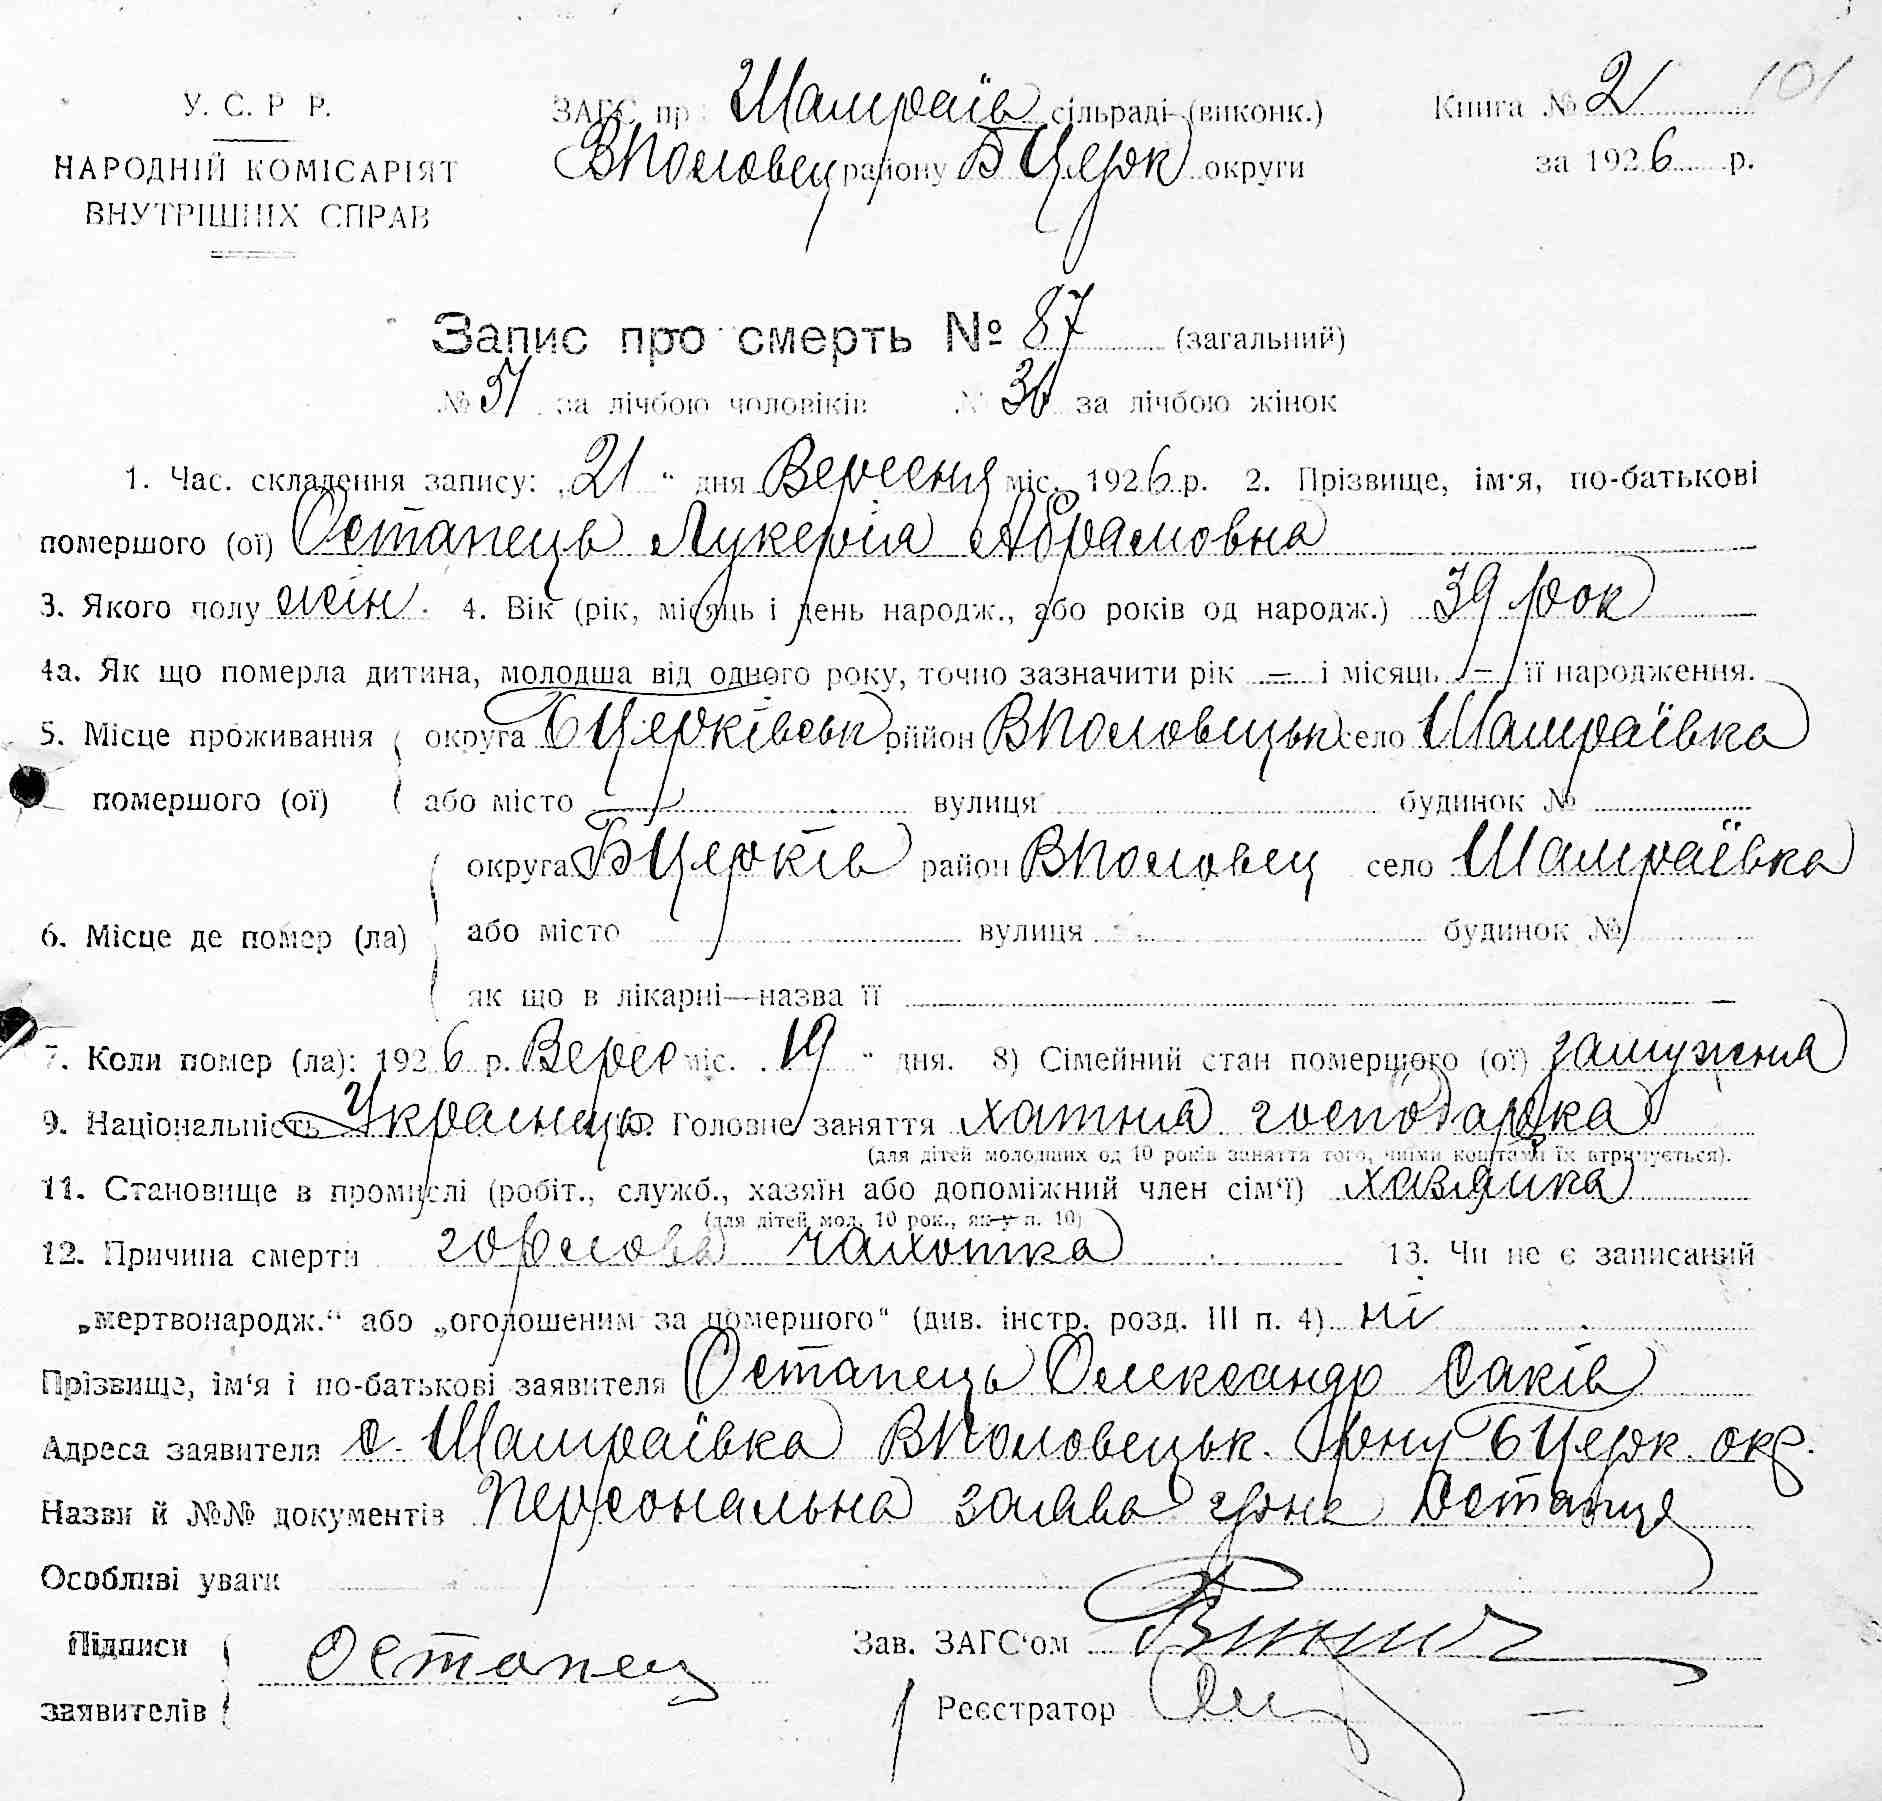 У. С. Р Р.
НАРОДНІЙ КОМІСАРІЯТ
ВНУТРІШНІХ СПРАВ
ЗАГС пр Шамраїв сільраді (виконк.)
ВПоловец району БЦерк округи
Книга № 2 101
за 1926 р.
Запис про смерть № 87 (загальний)
№ 51 за лічбою чоловіків № 36 за лічбою жінок
1. Час. складення запису: „21“ дня Вересня міс. 1926 р. 2. Прізвище, ім'я, по-батькові
помершого (ої) Остапець Лукерія Абрамовна
3. Якого полу жін. 4. Вік (рік, місяць і день народж., або років од народж.) 39 рок
4а. Як що померла дитина, молодша від одного року, точно зазначити рік — і місяць — її народження.
5. Місце проживання помершого (ої) округа БЦерківськ рийон ВПоловецьк село Шамраївка
або місто — вулиця будинок №
6. Місце де помер (ла) округа БЦерків район ВПоловец село Шамраївка
або місто вулиця будинок №
як що в лікарні—назва її —
7. Коли помер (ла): 1926 р. Верес міс. 19 “ дня. 8) Сімейний стан помершого (ої) замужня
9. Національність Українець 10. Головне заняття хатня господарка
(для дітей молодших од 10 років заняття того, чиїми коштами їх втримується).
11. Становище в промислі (робіт., служб., хазяїн або допоміжний член сім'ї) хазяйка
(для дітей мол. 10 рок., як у п. 10)
12. Причина смерти горлова чахотка 13. Чи не є записаний
„мертвонародж.“ або „оголошеним за помершого“ (див. інстр. розд. III п. 4) ні
Прізвище, ім'я і по-батькові заявителя Остапець Олександр Саків
Адреса заявителя с. Шамраївка ВПоловецьк. Рону БЦерк. окр.
Назви й №№ документів Персональна заява гр-на Остапця
Особливі уваги
Підписи заявителів Остапец
Зав. ЗАГС'ом
Реєстратор —